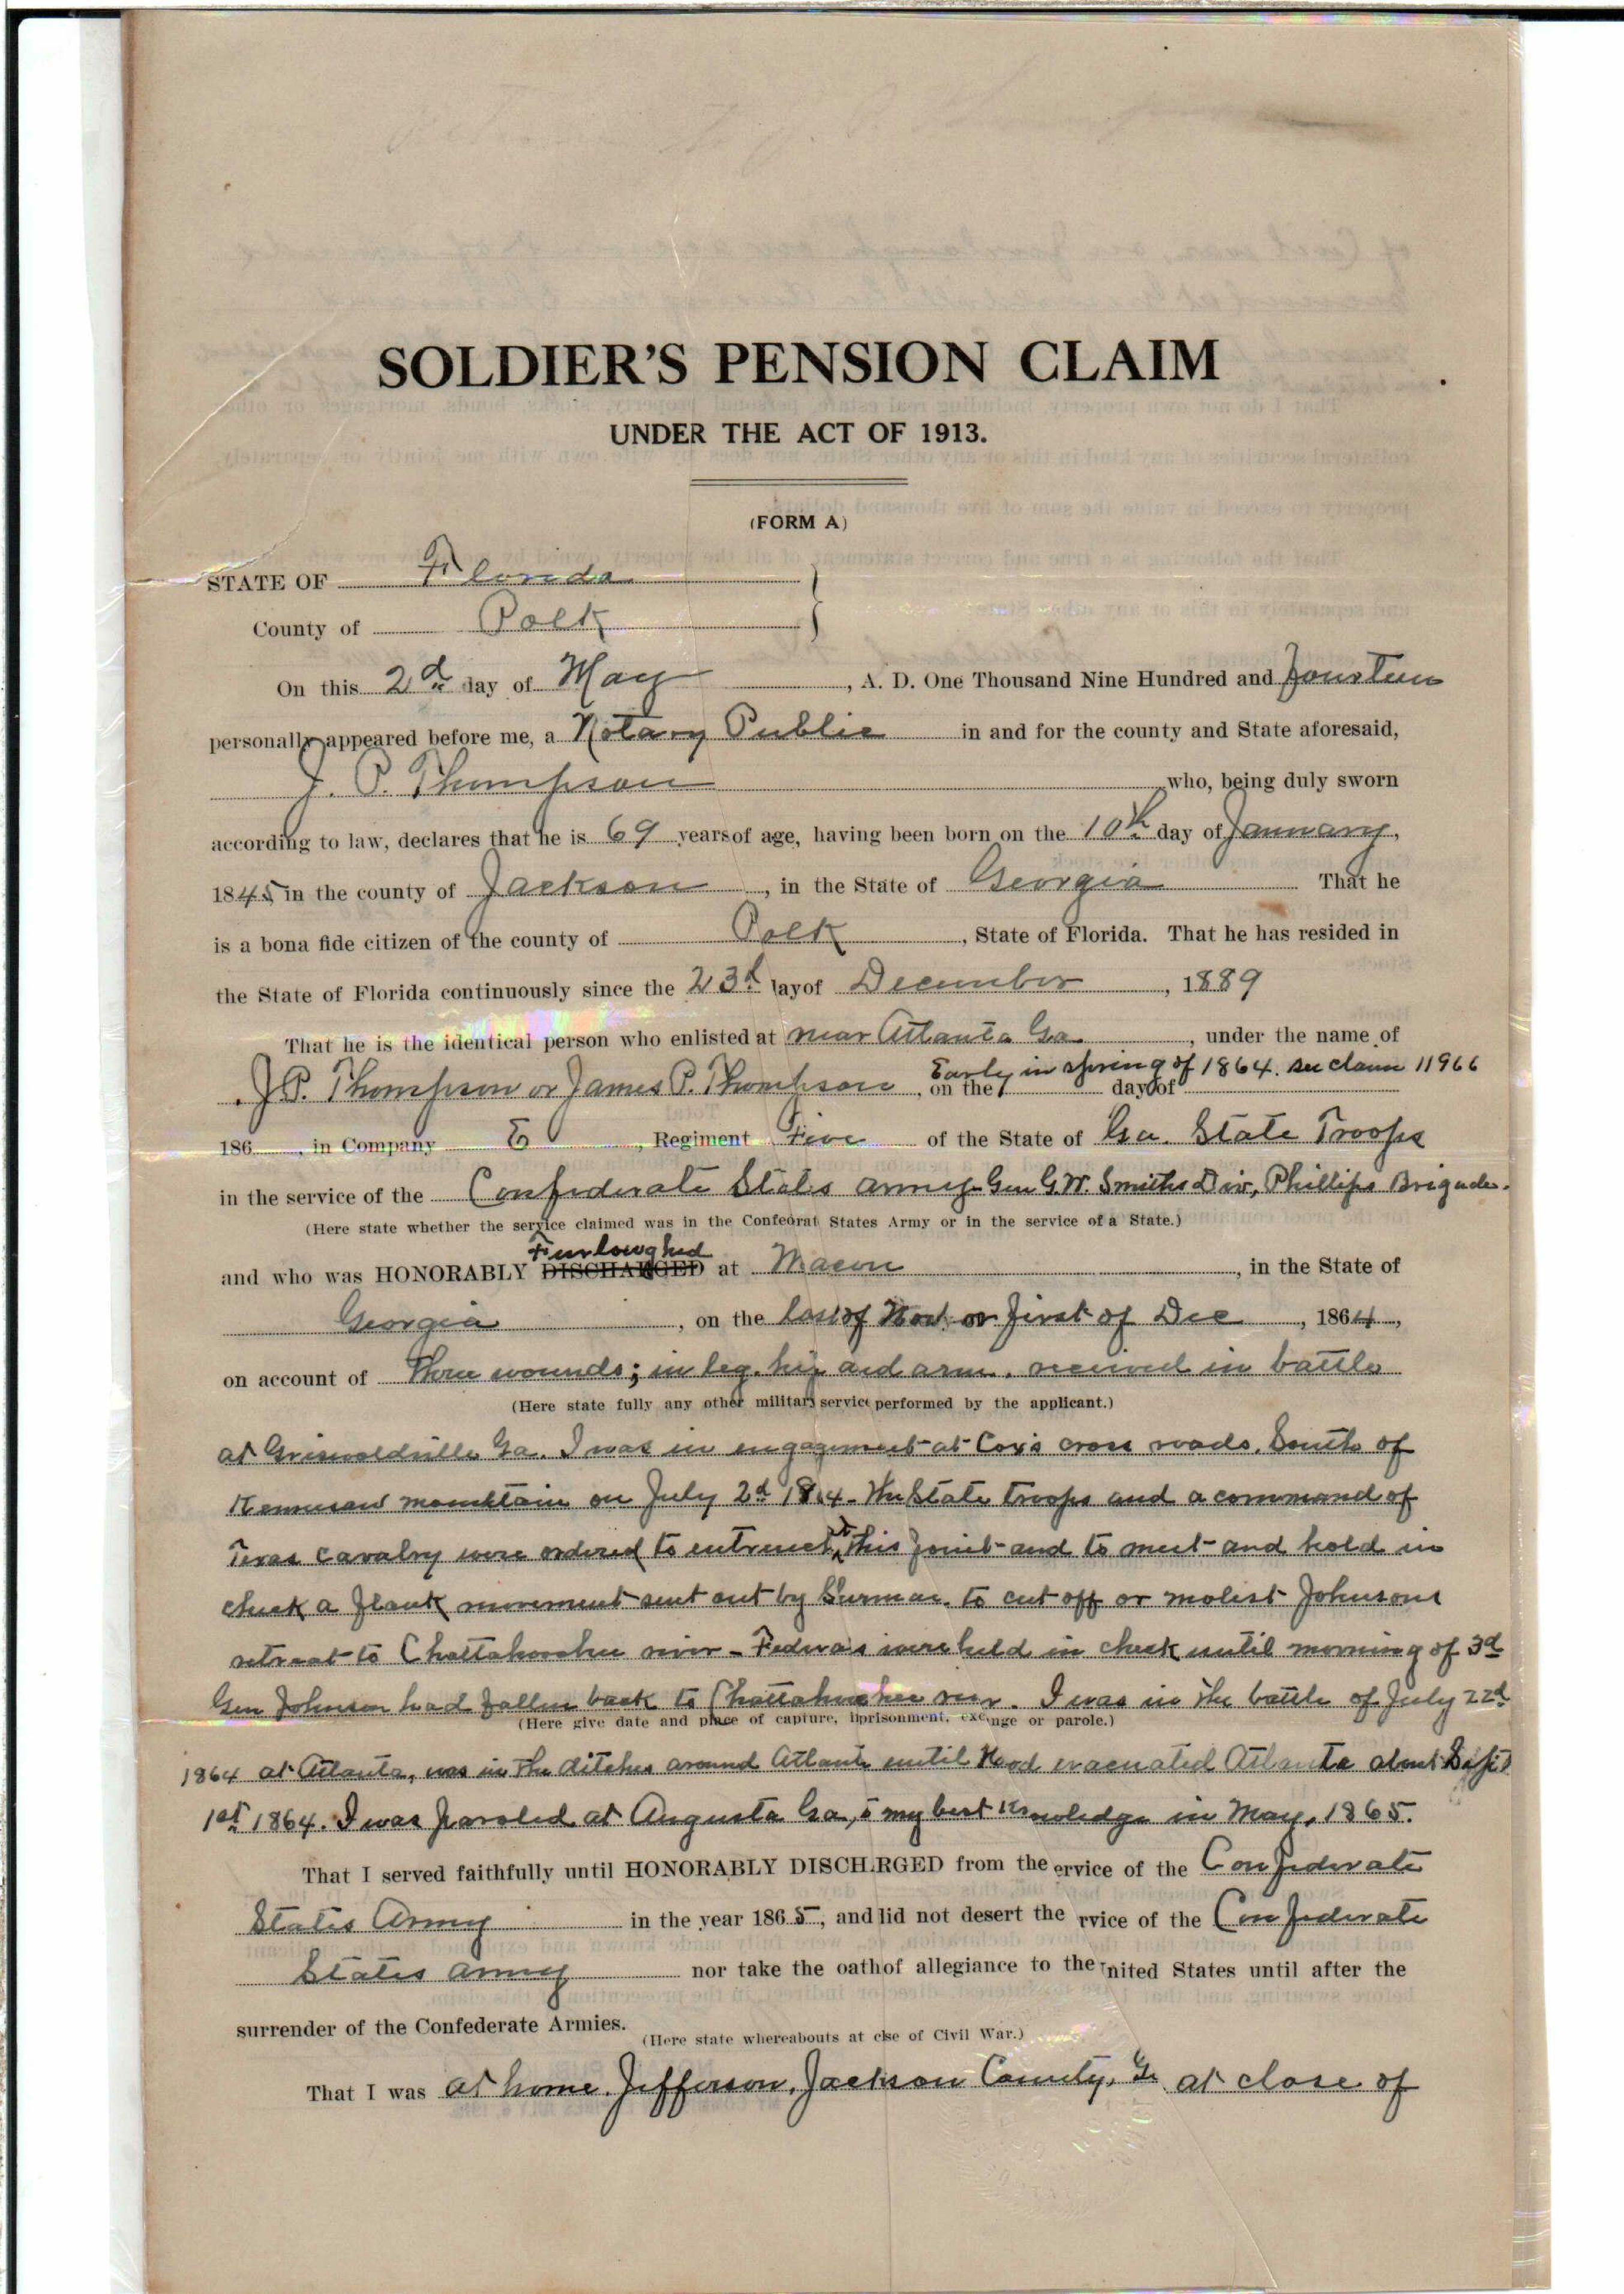 SOLDIER'S PENSION CLAIM
UNDER THE ACT OF 1913.
(FORM A)
STATE OF Florida
County of Polk
On this 2d day of May, A. D. One Thousand Nine Hundred and Fourteen
personally appeared before me, a Notary Public in and for the county and State aforesaid,
J. P. Thompson who, being duly sworn
according to law, declares that he is 69 years of age, having been born on the 10th day of January,
1845 in the county of Jackson, in the State of Georgia That he
is a bona fide citizen of the county of Polk, State of Florida. That he has resided in
the State of Florida continuously since the 23d day of December, 1889
That he is the identical person who enlisted at near Atlanta Ga, under the name of
J. P. Thompson or James P. Thompson, on the Early in spring of 1864. see claim 11966 day of
186 , in Company E, Regiment Five of the State of Ga. State Troops
in the service of the Confederate States Army - Gen G.W. Smiths Div, Phillips Brigade.
(Here state whether the service claimed was in the Confedrat States Army or in the service of a State.)
and who was HONORABLY DISCHARGED Furloughed at Macon, in the State of
Georgia, on the last of Nov. or first of Dec, 1864,
on account of three wounds; in leg, hip and arm. received in battle
(Here state fully any other military service performed by the applicant.)
at Griswoldville Ga. I was in engagement at Cox's cross roads. South of
Kennesaw mountain on July 2d 1864 - The State troops and a command of
Texas cavalry were ordered to entrench at this point - and to meet - and hold in
check a flank movement sent out by Surman. to cut off or molest Johnsons
retreat to Chattahoochee river - Federals were held in check until morning of 3d
Gen Johnson had fallen back to Chattahoochee river. I was in the battle of July 22d
(Here give date and place of capture, imprisonment, exchange or parole.)
1864 at Atlanta, was in the ditches around Atlanta until Hood evacuated Atlanta about Sept
1st 1864. I was paroled at Augusta Ga, to my best knowledge in May, 1865.
That I served faithfully until HONORABLY DISCHARGED from the ervice of the Confederate
States Army in the year 1865, and did not desert the rvice of the Confederate
States Army nor take the oath of allegiance to the United States until after the
surrender of the Confederate Armies.
(Here state whereabouts at close of Civil War.)
That I was at home. Jefferson, Jackson County, Ga at close of